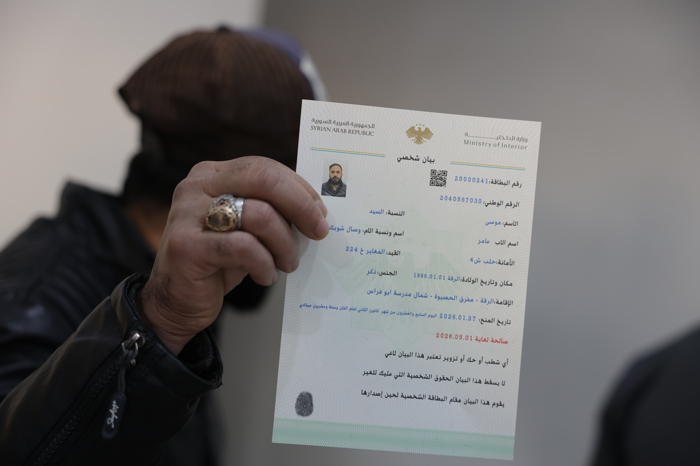 الجمهورية العربية السورية
SYRIAN ARAB REPUBLIC
وزارة الداخلية
Ministry of Interior
بيان شخصي
رقم البطاقة: 20000241
الرقم الوطني: 2040567030
الاسم: موسى
النسبة: السيد
اسم الاب: عامر
اسم ونسبة الام: وصال شويخ
الأمانة: حلب ش4
القيد: المغاير خ 224
مكان وتاريخ الولادة: الرقة 1996.01.01
الجنس: ذكر
الإقامة: الرقة - مفرق الحصيوة - شمال مدرسة ابو فراس
تاريخ المنح: 2026.01.27 اليوم السابع والعشرون من شهر كانون الثاني لعام الفان وستة وعشرون ميلادي
صالحة لغاية 2026.03.01
أي شطب أو حك أو تزوير تعتبر هذا البيان لاغي
لا يسقط هذا البيان الحقوق الشخصية التي عليك للغير
يقوم هذا البيان مقام البطاقة الشخصية لحين إصدارها